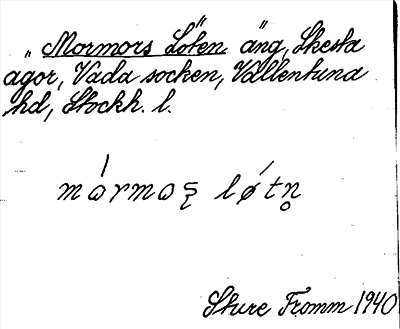 „Mormors Löten äng, Skesta
ägor, Vada socken, Vallentuna
hd, Stockh. l.
mòrmoş lǿtn̥
Sture Fromm 1940